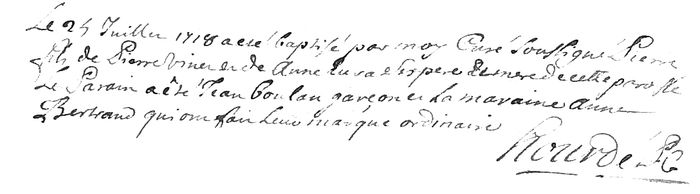 Le 24 Juillet 1718 a esté baptisé par moy Curé Soussigné Pierre
fils de Pierre Viner et de Anne ses pere et mere de cette paroisse
Le Parain a êté Jean Boulan garçon et La maraine Anne
Bertrand qui ont fait Leur marque ordinaire